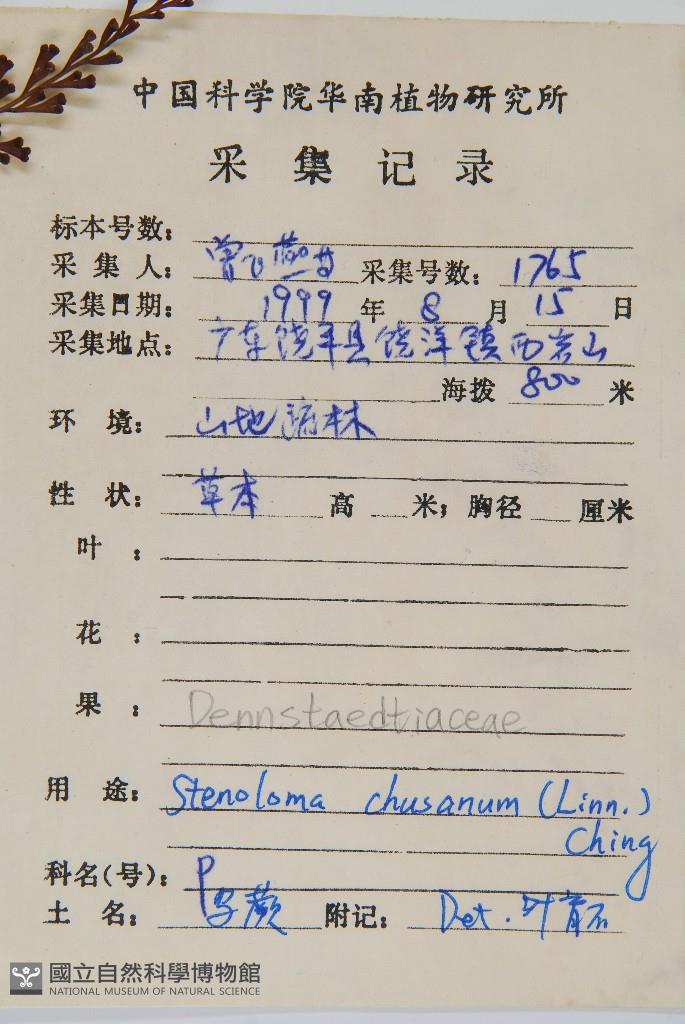 中国科学院华南植物研究所
采集记录
标本号数:
采集人: 曾飞燕等 采集号数: 1765
采集日期: 1999 年 8 月 15 日
采集地点: 广东饶平县饶洋镇西岩山
海拨 800 米
环境: 山地 林
性状: 草本 高 米; 胸径 厘米
叶:
花:
果: Dennstaedtiaceae
用途: Stenoloma chusanum (Linn.)
Ching
科名(号): P
土名: 乌蕨 附记: Det. 叶育石
國立自然科學博物館
NATIONAL MUSEUM OF NATURAL SCIENCE